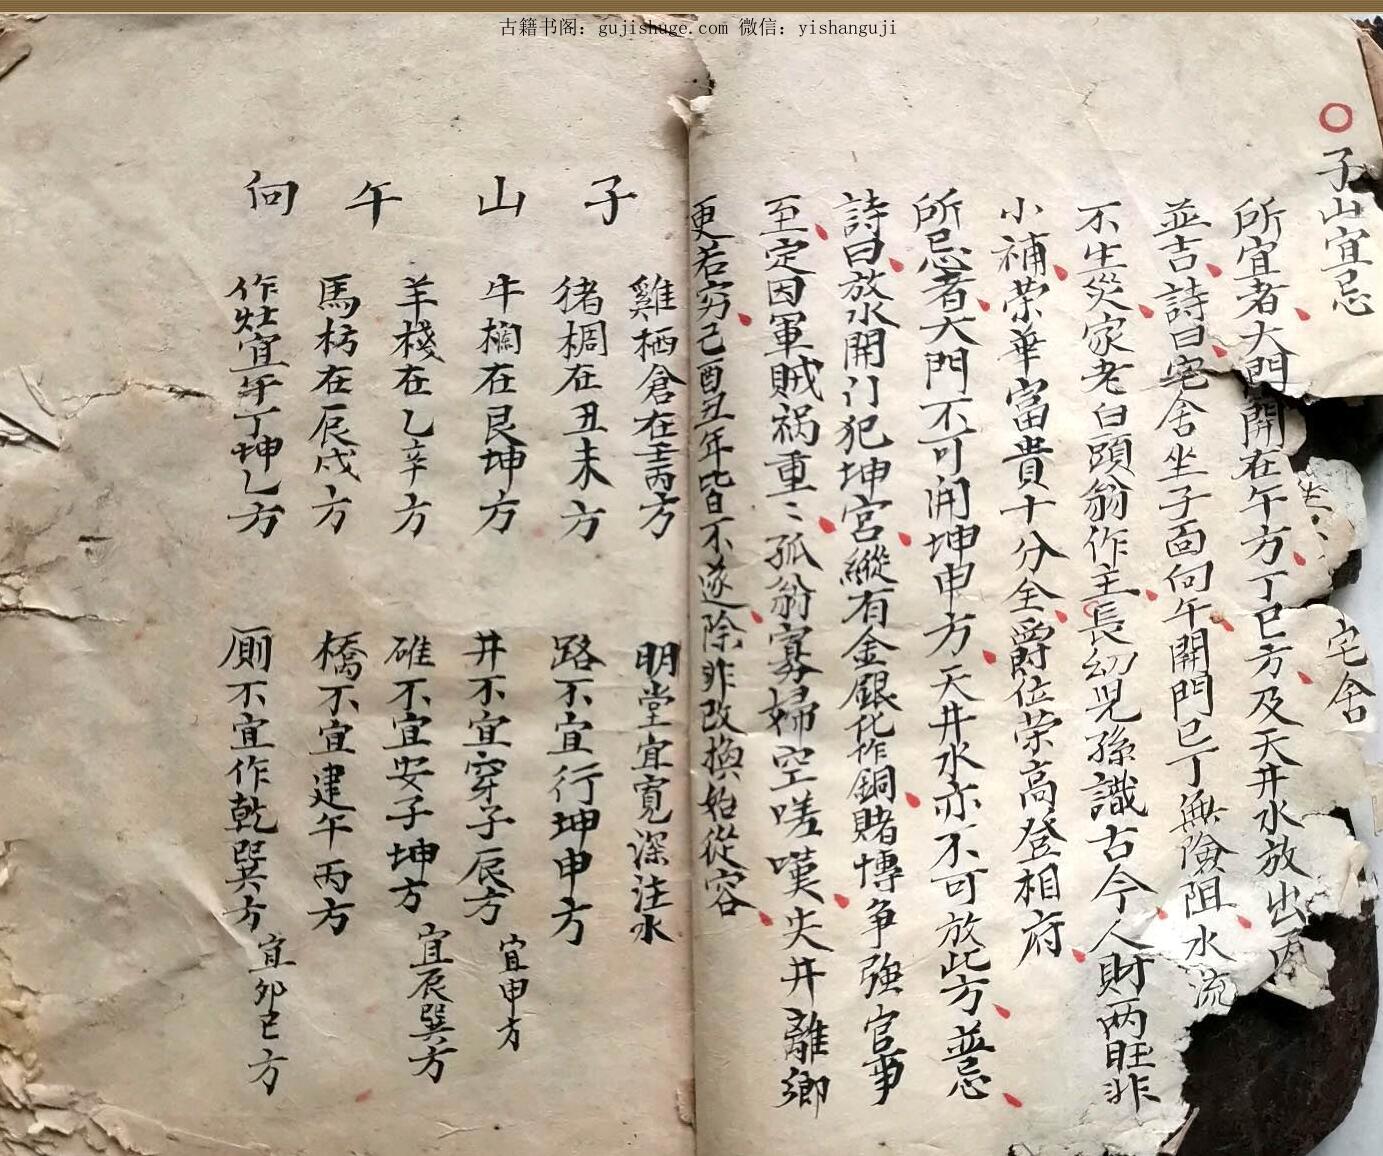 古籍书阁：gujishuge.com 微信：yishanguji
子山宜忌
宅舍
所宜者大門開在午方丁巳方及天井水放出
並吉詩曰宅舍坐子面向午開門巳丁無險阻水流
不生災家老白頭翁作主長幼兒孫識古今人財两旺非
小補荣華富貴十分全爵位荣高登相府
所忌者大門不可開坤申方天井水亦不可放此方並忌
詩曰放水開门犯坤宮縱有金銀化作銅賭博争強官事
至定因軍賊祸重〻孤翁寡婦空嗟嘆失井離鄉
更若穷己酉丑年皆不遂除非改換始從容
子山午向
雞栖倉在壬丙方
猪椆在丑未方
牛欄在艮坤方
羊棧在乙辛方
馬枋在辰戌方
作灶宜午丁坤乙方
明堂宜寬深注水
路不宜行坤申方
井不宜穿子辰方 宜申方
碓不宜安子坤方 宜辰巽方
橋不宜建午丙方
厠不宜作乾巽方 宜卯巳方